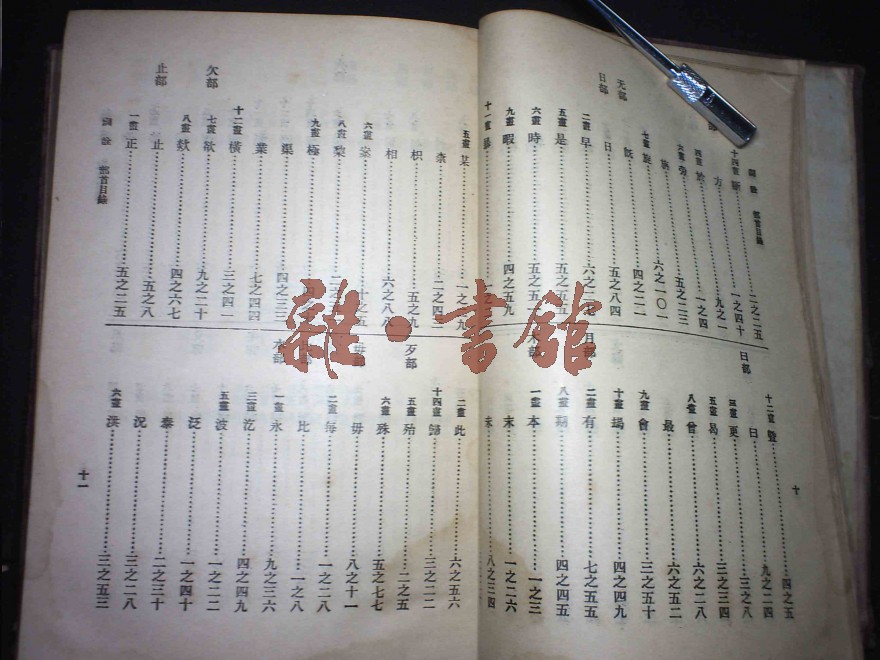 詞詮 部首目錄
十四畫 斷 二之二五
方 一之四十
四畫 於 九之一
六畫 旁 一之四
族 五之二三
七畫 旋 六之一〇一
无部 既 四之二二
日部 日 五之八四
二畫 早 六之二七
五畫 是 五之五五
六畫 時 五之五
九畫 暇 四之五九
十一畫
十二畫 暨 四之五
曰部 曰 九之二四
三畫 更 三之八
五畫 曷 三之三四
八畫 曾 六之二八
最 六之五二
九畫 會 三之五十
十畫 朅 四之四九
月部 二畫 有 七之五五
八畫 期 四之四五
一畫 本 一之三
末 一之二六
未 八之二四
十
五畫 某
柰 二之四
枳 五之九
相 六之八八
六畫 案
八畫
九畫 極
渠 四之三三
業 七之四四
十二畫 橫 三之四一
欠部 七畫 欲 九之二十
八畫 欸 四之六七
止部 止 五之八
一畫 正 五之二五
詞詮 部首目錄
二畫 此 六之五六
十四畫 歸 三之二二
歹部 五畫 殆 二之五
六畫 殊 五之七七
毋部 毋 八之十一
二畫 每 一之二八
比 一之八
水部 一畫 永 九之三六
三畫 汔 四之四九
五畫 波 一之二二
泛 一之四十
泰 二之三十
況 三之二八
六畫 洪 三之五三
十一
雜·書館